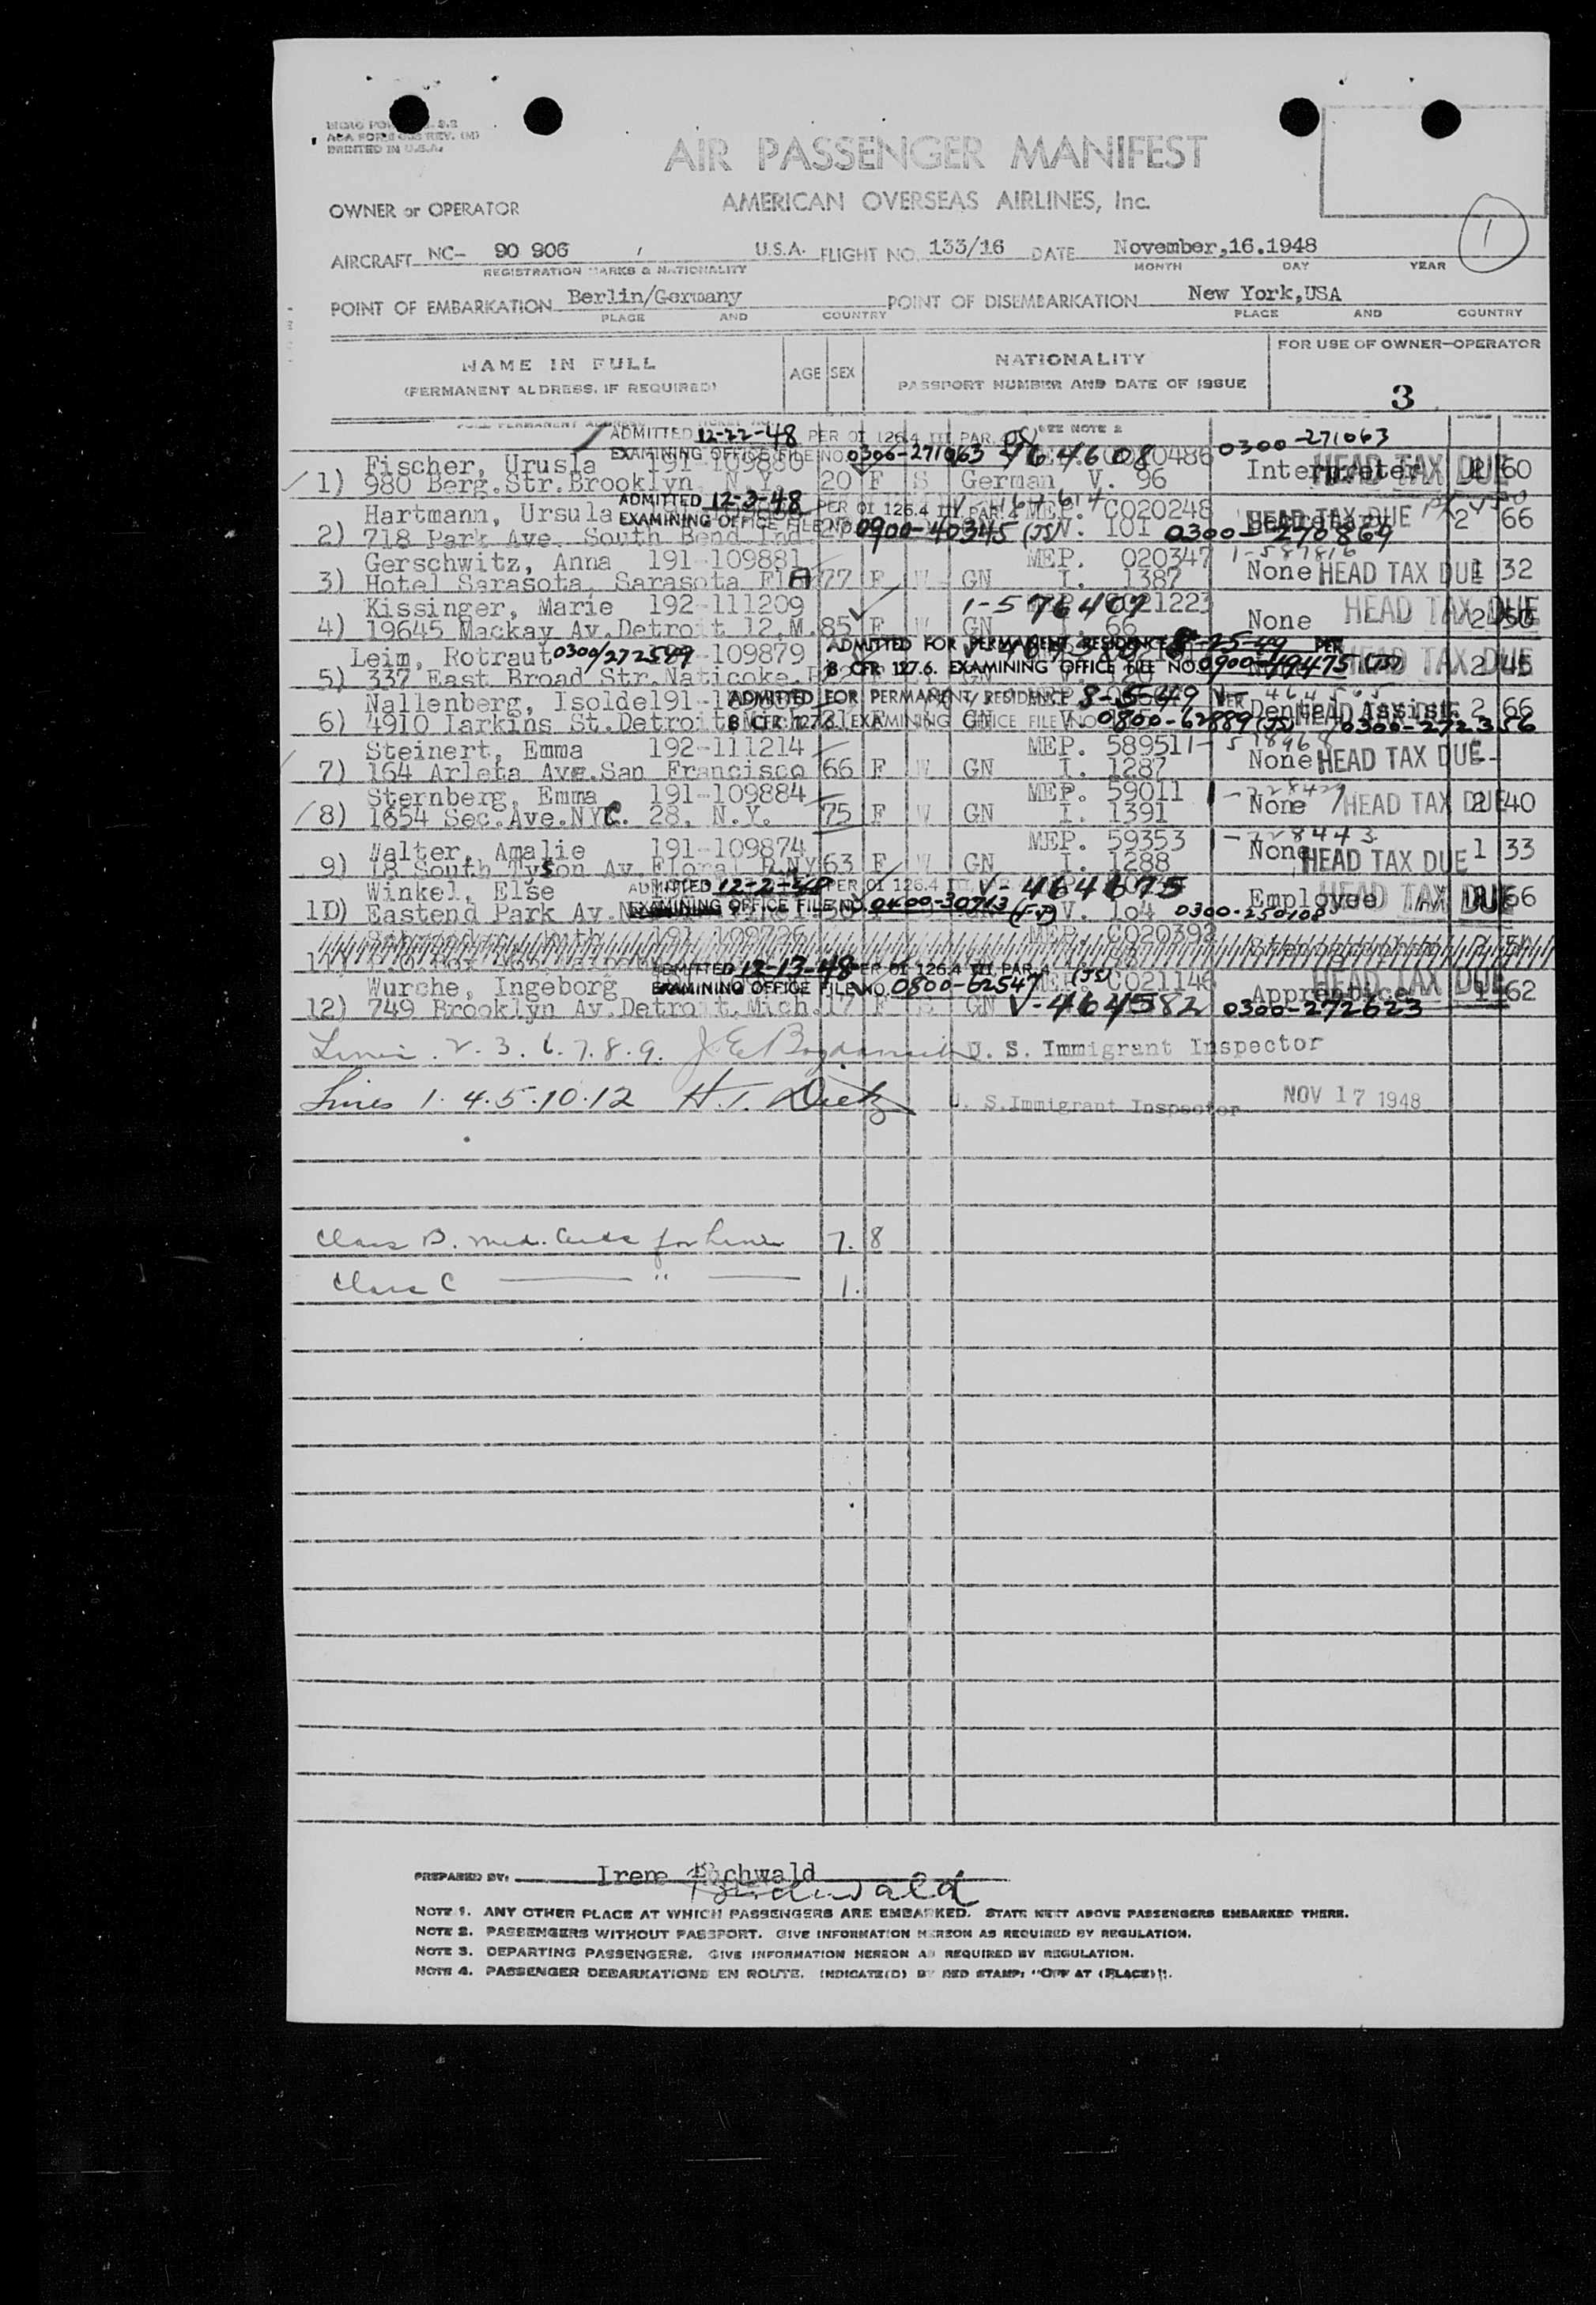 PRINTED IN U.S.A.
AIR PASSENGER MANIFEST
AMERICAN OVERSEAS AIRLINES, Inc.
OWNER or OPERATOR
1
AIRCRAFT NC- 90 906 U.S.A. FLIGHT NO. 133/16 DATE November,16.1948
REGISTRATION MARKS & NATIONALITY MONTH DAY YEAR
POINT OF EMBARKATION Berlin/Germany POINT OF DISEMBARKATION New York,USA
PLACE AND COUNTRY PLACE AND COUNTRY
NAME IN FULL AGE SEX NATIONALITY FOR USE OF OWNER-OPERATOR
(PERMANENT ADDRESS, IF REQUIRED) PASSPORT NUMBER AND DATE OF ISSUE
3
SEE NOTE 2
ADMITTED 12-22-48 PER OI 126.4 III PAR. 0300-271063
EXAMINING OFFICE FILE NO. 0300-271063
Fischer, Urusla 191-109880 Interpreter HEAD TAX DUE 60
1) 980 Berg.Str.Brooklyn N.Y. 20 F S German V. 96
ADMITTED 12-3-48 PER OI 126.4 III PAR. 4
Hartmann, Ursula MEP. CO20248 HEAD TAX DUE 2 66
EXAMINING OFFICE FILE NO. 0900-40345 (JS)
2) 718 Park Ave. South Bend.Ind. V. 101 0300-270869
Gerschwitz, Anna 191-109881 MEP. 020347 1-587816
3) Hotel Sarasota, Sarasota FlA 77 F W GN I. 1387 None HEAD TAX DUE 1 32
Kissinger, Marie 192-111209 1-576407 HEAD TAX DUE
4) 19645 Mackay Av.Detroit 12,M. 85 F W GN I. 66 None 2 50
ADMITTED FOR PERMANENT RESIDENCE 8-25-49 PER
Leim, Rotraut 0300/272599 -109879
8 CFR 127.6. EXAMINING OFFICE FILE NO. 0900-49475 (JS) HEAD TAX DUE 2 45
5) 337 East Broad Str.Naticoke. V. 120
ADMITTED FOR PERMANENT RESIDENCE 8-5-49 PER
Nallenberg, Isolde 191- Dental Assist. 2 66
8 CFR 127.6. EXAMINING OFFICE FILE NO. 0800-62889 (JS) HEAD TAX DUE
6) 4910 Larkins St.Detroit Mich. GN 0300-272356
Steinert, Emma 192-111214 MEP. 58951
7) 164 Arleta Ave.San Francisco 66 F W GN I. 1287 None HEAD TAX DUE
Sternberg, Emma 191-109884 MEP. 59011
8) 1654 Sec.Ave.NYC. 28, N.Y. 75 F W GN I. 1391 None HEAD TAX DUE 2 40
Walter, Amalie 191-109874 MEP. 59353 1-728443
9) 18 South Tyson Av.Floral P.NY 63 F W GN I. 1288 None HEAD TAX DUE 1 33
ADMITTED 12-2-48 PER OI 126.4 V-464675
Winkel, Else Employee HEAD TAX DUE 66
EXAMINING OFFICE FILE NO. 0400-30713
10) Eastend Park Av. V. 104 0300-250108
191-109726 MEP. CO20392
ADMITTED 12-13-48 PER OI 126.4 III PAR. 4 (JS)
Wurche, Ingeborg MEP. CO21146 Apprentice HEAD TAX DUE 1 62
EXAMINING OFFICE FILE NO. 0800-62547
12) 749 Brooklyn Av.Detroit.Mich. 17 F S GN V-464582 0300-272623
Lines . 2. 3. 6. 7. 8. 9. U. S. Immigrant Inspector
Lines 1. 4. 5. 10. 12 H. T. Dietz U. S.Immigrant Inspector NOV 17 1948
Class B. med. Certs for Lines 7. 8
Class C " 1.
PREPARED BY: Irene Buchwald
Buchwald
NOTE 1. ANY OTHER PLACE AT WHICH PASSENGERS ARE EMBARKED. STATE NEXT ABOVE PASSENGERS EMBARKED THERE.
NOTE 2. PASSENGERS WITHOUT PASSPORT. GIVE INFORMATION HEREON AS REQUIRED BY REGULATION.
NOTE 3. DEPARTING PASSENGERS. GIVE INFORMATION HEREON AS REQUIRED BY REGULATION.
NOTE 4. PASSENGER DEBARKATIONS EN ROUTE. INDICATE(D) BY RED STAMP: "OFF AT (PLACE)".